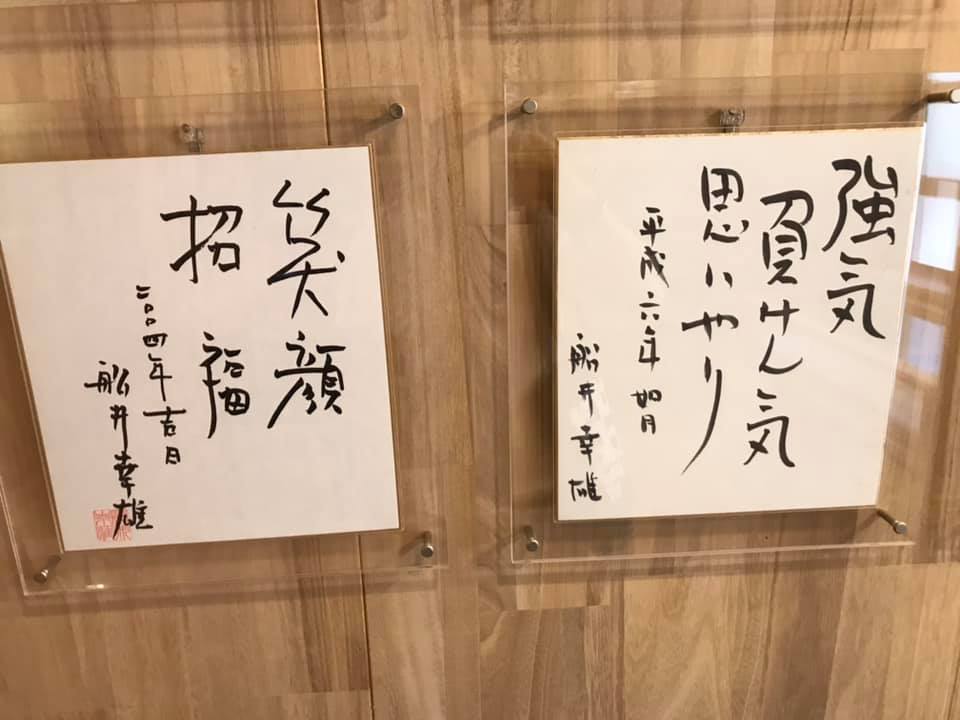 強気
負けん気
思いやり
平成六年 如月
船井幸雄
笑顔
招福
二〇〇四年吉日
船井幸雄